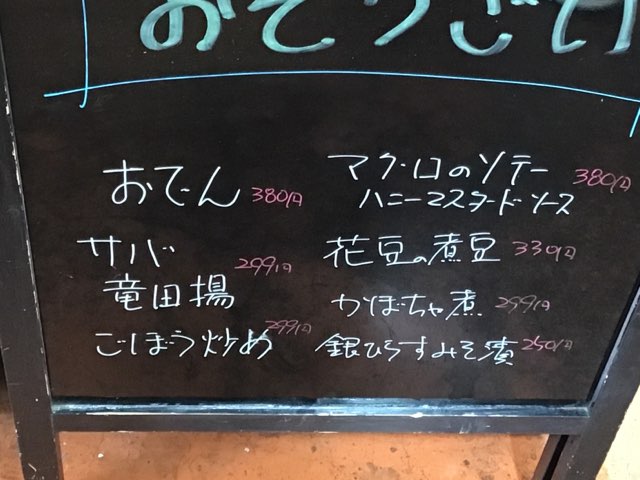 おそうざい
おでん 380円
サバ
竜田揚 299円
ごぼう炒め 299円
マグロのソテー
ハニーマスタードソース 380円
花豆の煮豆 330円
かぼちゃ煮 299円
銀ひらすみそ漬 250円